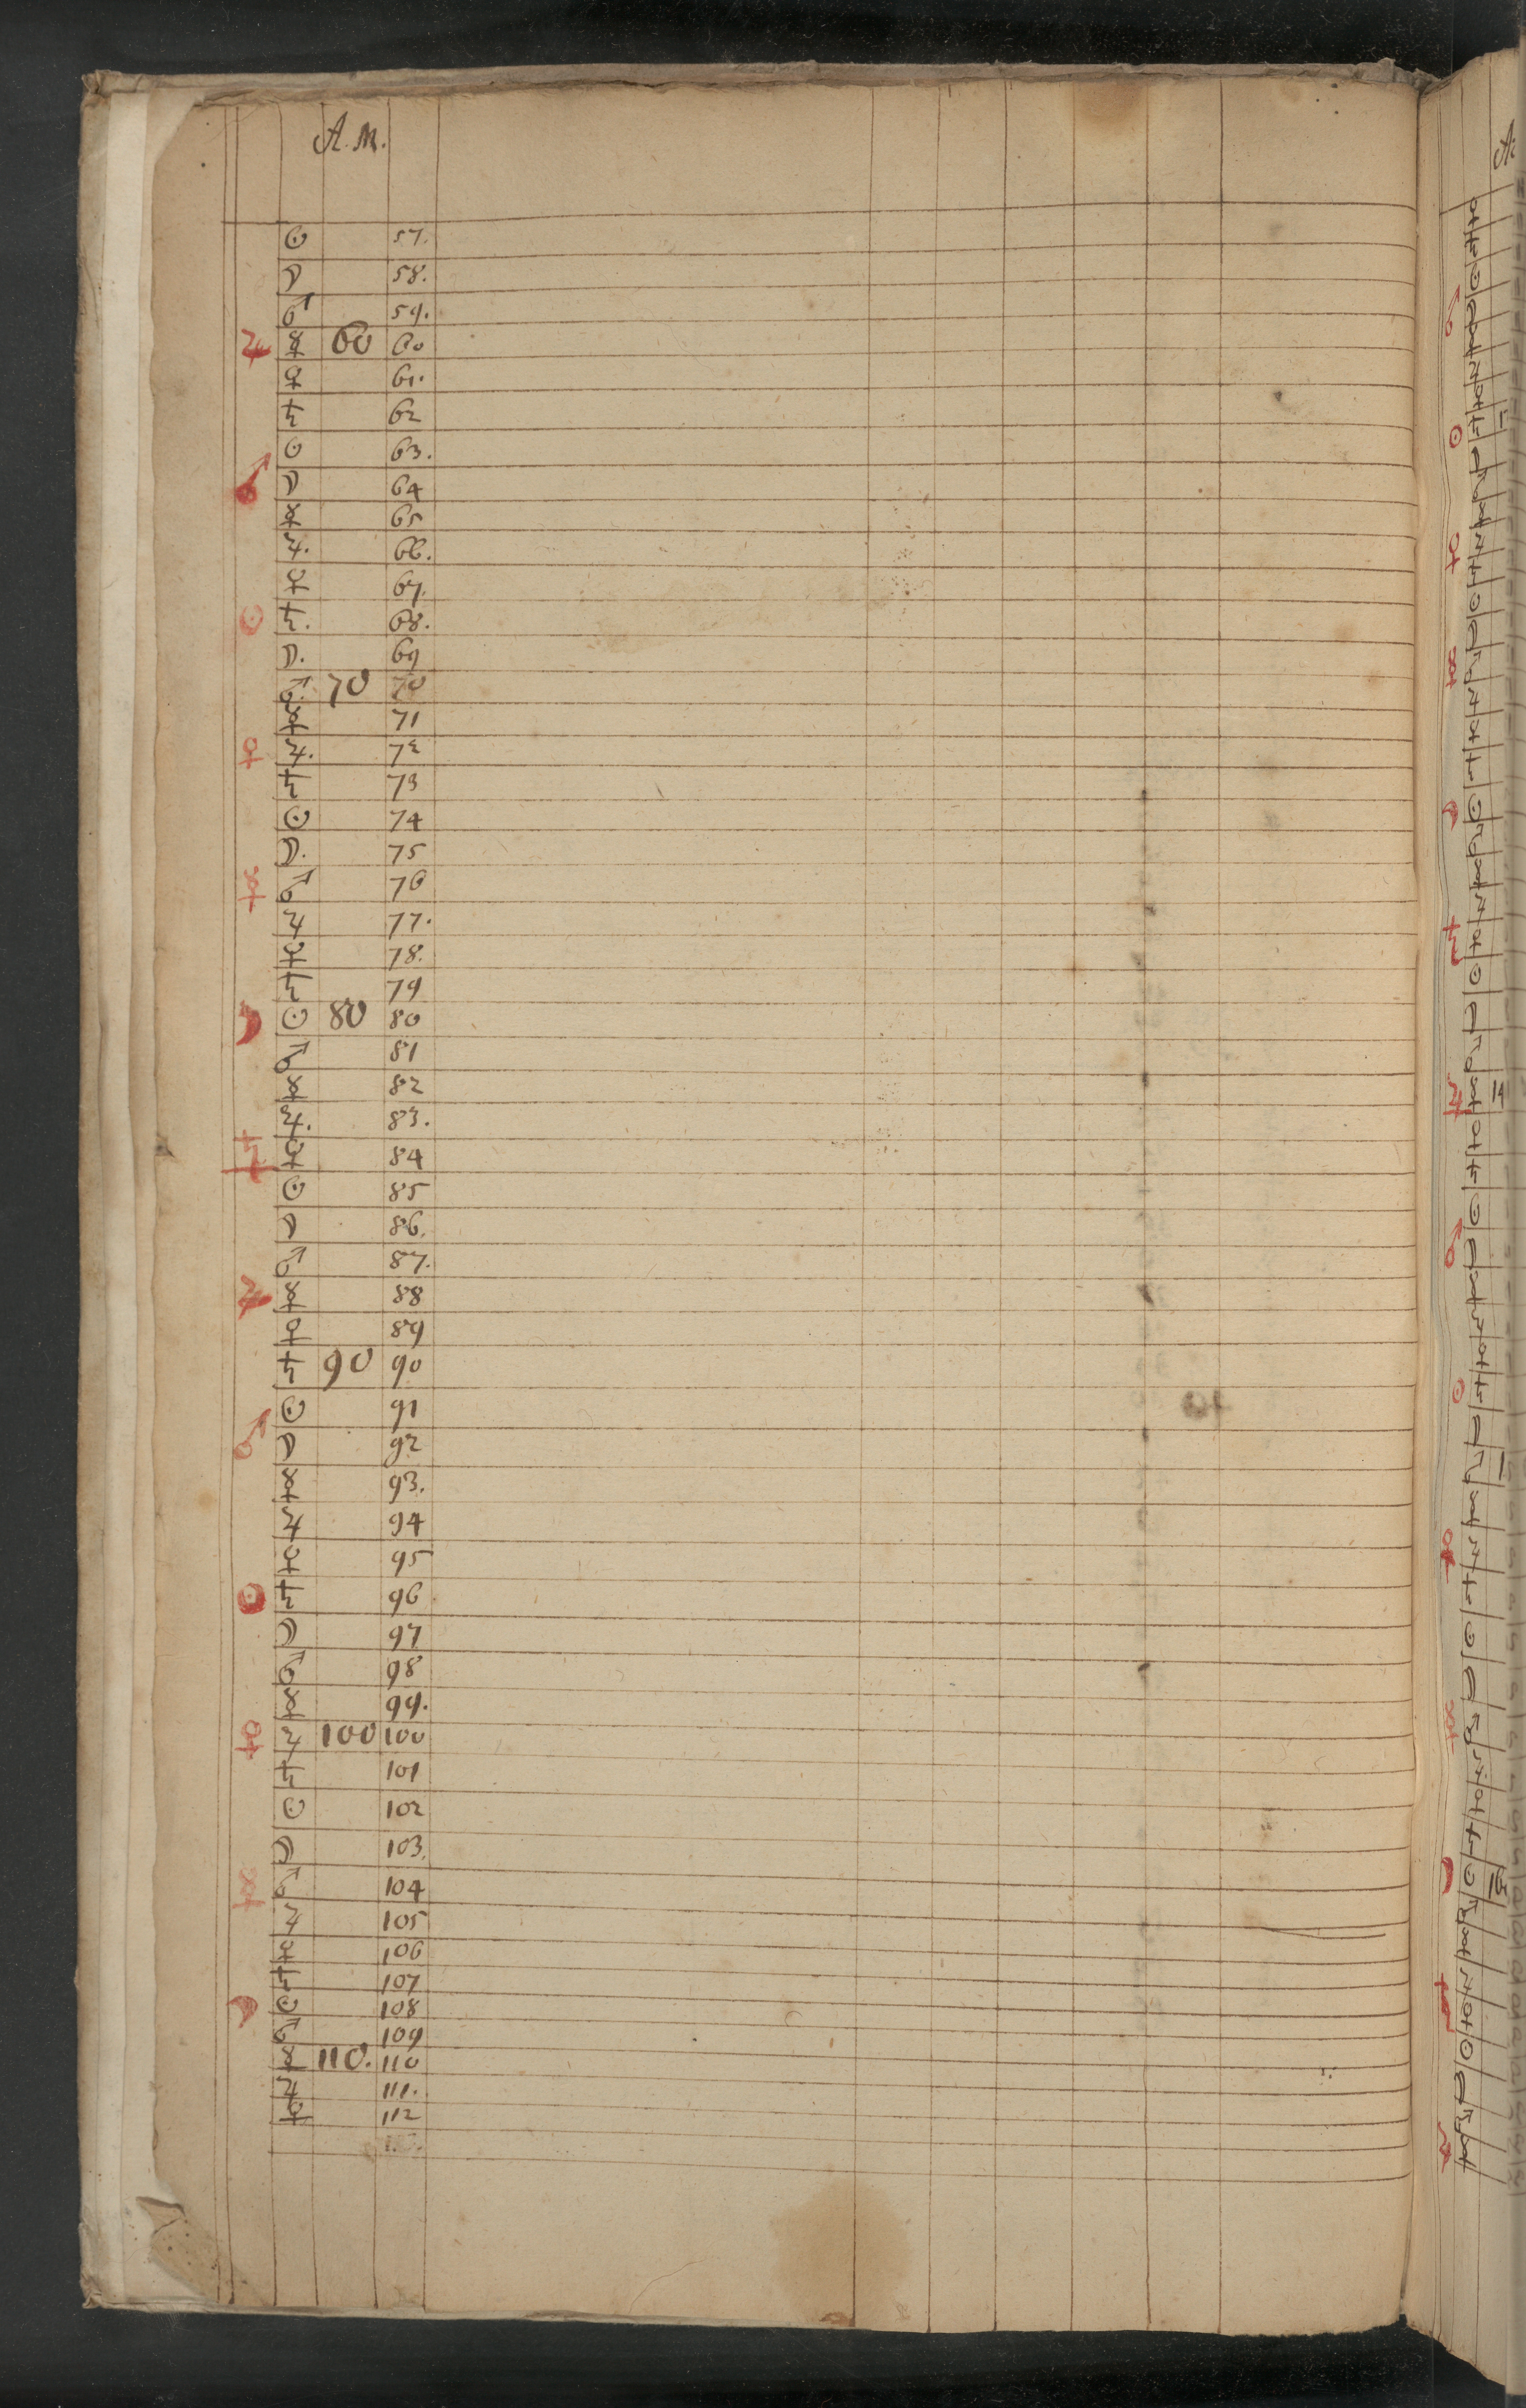 A. M.
☉ 57.
☽ 58.
♂ 59.
♃ ☿ 60 60
♀ 61.
♄ 62
☉ 63.
♂ ☽ 64
☿ 65
♃. 66.
♀ 67.
☉ ♄. 68.
☽. 69
♂. 70 70
☿ 71
♀ ♃. 72
♄ 73
☉ 74
☽. 75
☿ ♂ 76
♃ 77.
♀ 78.
♄ 79
☽ ☉ 80 80
♂ 81
☿ 82
♃. 83.
♄ ♀ 84
☉ 85
☽ 86.
♂ 87.
♃ ☿ 88
♀ 89
♄ 90 90
☉ 91
♂ ☽ 92
☿ 93.
♃ 94
♀ 95
☉ ♄ 96
☽ 97
♂ 98
☿ 99.
♀ ♃ 100 100
♄ 101
☉ 102
☽ 103.
☿ ♂ 104
♃ 105
♀ 106
♄ 107
☽ ☉ 108
♂ 109
☿ 110. 110
♃ 111.
♀ 112